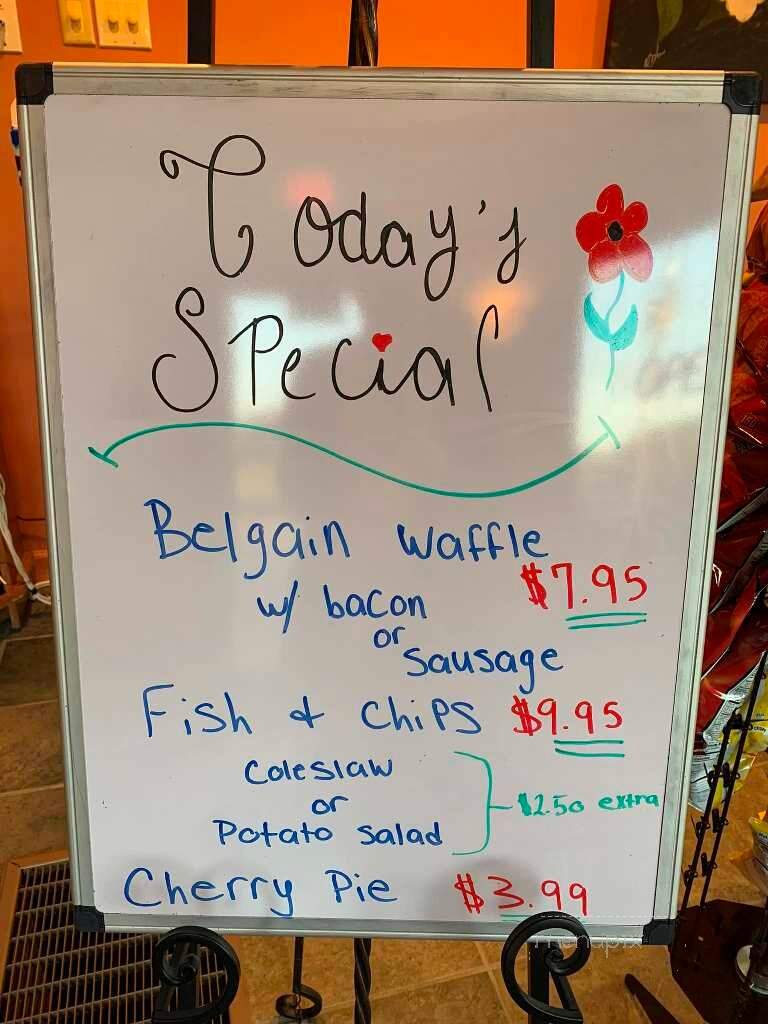 Today's
Special
Belgain waffle
$7.95
w/ bacon
or
sausage
Fish & Chips $9.95
Coleslaw
or
Potato salad
$2.50 extra
Cherry Pie $3.99
menupix